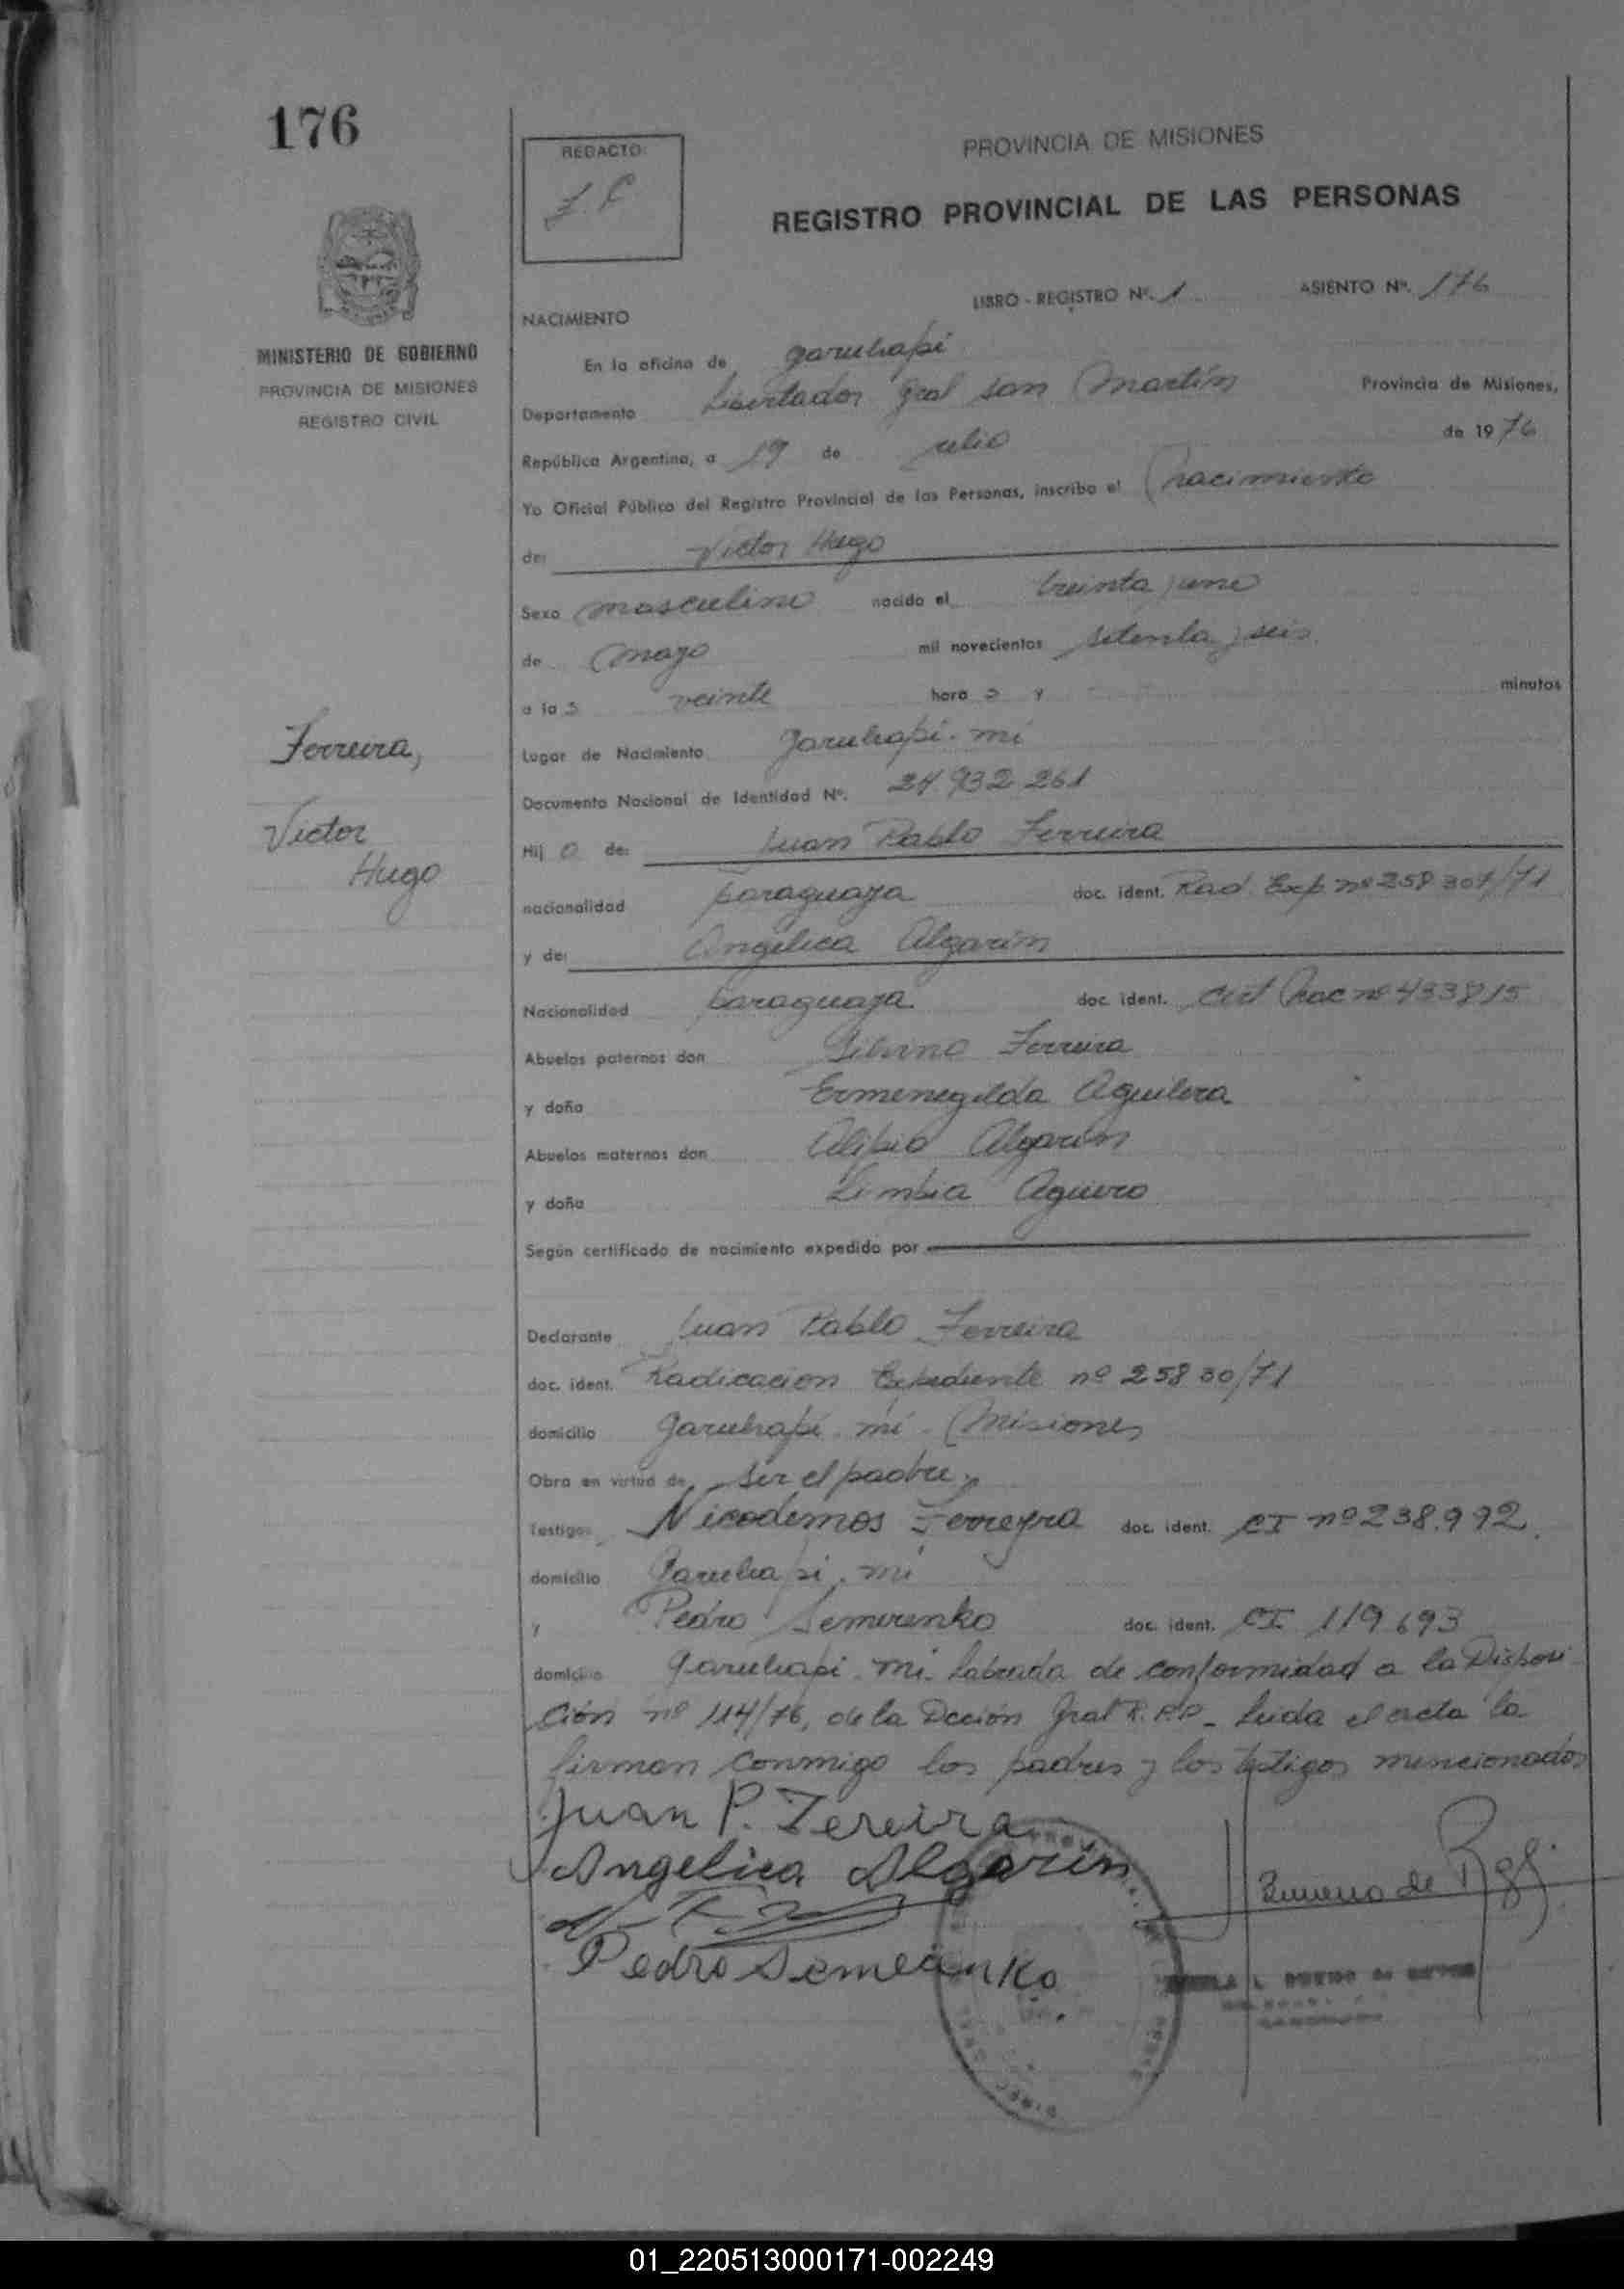 176
REDACTO:
PROVINCIA DE MISIONES
REGISTRO PROVINCIAL DE LAS PERSONAS
MINISTERIO DE GOBIERNO
PROVINCIA DE MISIONES
REGISTRO CIVIL
LIBRO - REGISTRO Nº. 1 ASIENTO Nº. 176
NACIMIENTO
En la oficina de Garuhapi
Departamento Libertador Gral San Martín Provincia de Misiones,
República Argentina, a 19 de julio de 1976
Yo Oficial Público del Registro Provincial de las Personas, inscribo el nacimiento
de: Victor Hugo
Sexo masculino nacido el treinta y uno
de mayo mil novecientos setenta y seis
a la s veinte hora s y minutos
Lugar de Nacimiento Garuhapi. mi
Documento Nacional de Identidad Nº. 24.932.261
Hij o de: Juan Pablo Ferreira
nacionalidad paraguaya doc. ident. Rad. Exp. nº 258307/71
y de: Angelica Algarin
Nacionalidad paraguaya doc. ident. Cert Nac nº 433815
Abuelos paternos don Silvino Ferreira
y doña Ermenegilda Aguilera
Abuelos maternos don Alipio Algarin
y doña Limbia Aguero
Según certificado de nacimiento expedido por
Ferreira,
Victor
Hugo
Declarante Juan Pablo Ferreira
doc. ident. Radicacion Expediente nº 258 30/71
domicilio Garuhapi. mi - Misiones
Obra en virtud de ser el padre y
Testigos Nicodemos Ferreyra doc. ident. CI nº 238.992.
domicilio Garuhapi. mi
y Pedro Semerenko doc. ident. CI 119.693
domicilio Garuhapi. mi. labrada de conformidad a la Disposi
ción nº 114/76, de la Dcción Gral R.P.P - leida el acta la
firman conmigo los padres y los testigos mencionados
Juan P. Fereira
Angelica Algarin
Pedro Semeanko
01_220513000171-002249